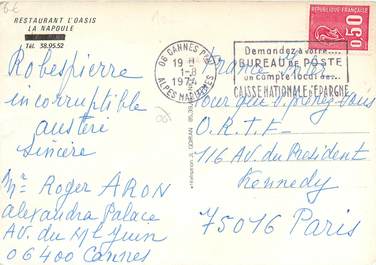 RESTAURANT L'OASIS
LA NAPOULE
Tél. 38.95.52
Robespierre
incorruptible
austère
sincère
Mr Roger ARON
alexandra Palace
AV. du Ml Juin
06400 Cannes
06 CANNES PPAL
19 H
1-8
ALPES MARITIMES
Demandez à votre
BUREAU DE POSTE
un compte local de
CAISSE NATIONALE D'EPARGNE
0,50
France
Pour qui votez-vous
O.R.T.F
116 AV. du President
Kennedy
75016 Paris